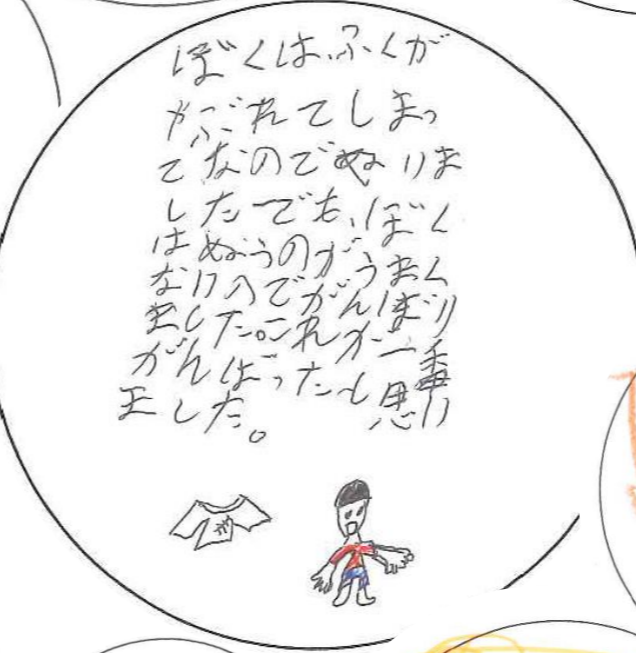 ぼくは、ふくが
やぶれてしまっ
てなのでぬいま
した一でも、ぼく
はぬうのがうまく
ないのでがんばり
ました。これが一番
がんばったと思い
ました。